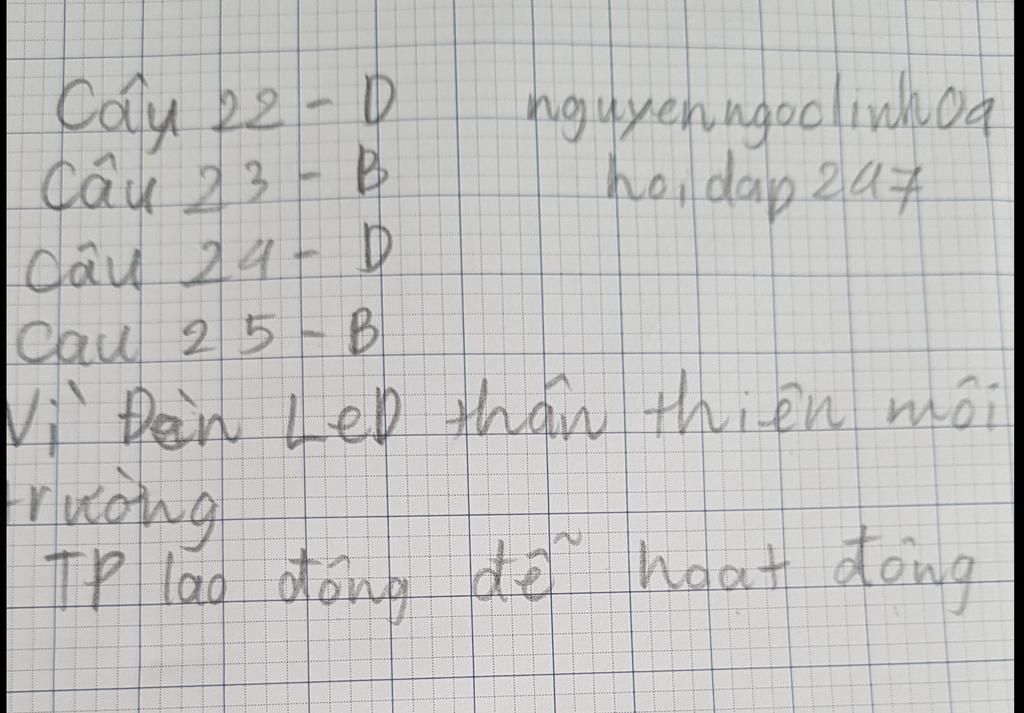 Câu 22 - D nguyenngoclinh09
Câu 23 - B hoidap247
Câu 24 - D
Cau 25 - B
Vì Đèn LeD thân thiện môi
trường
TP lao động dễ hoạt động